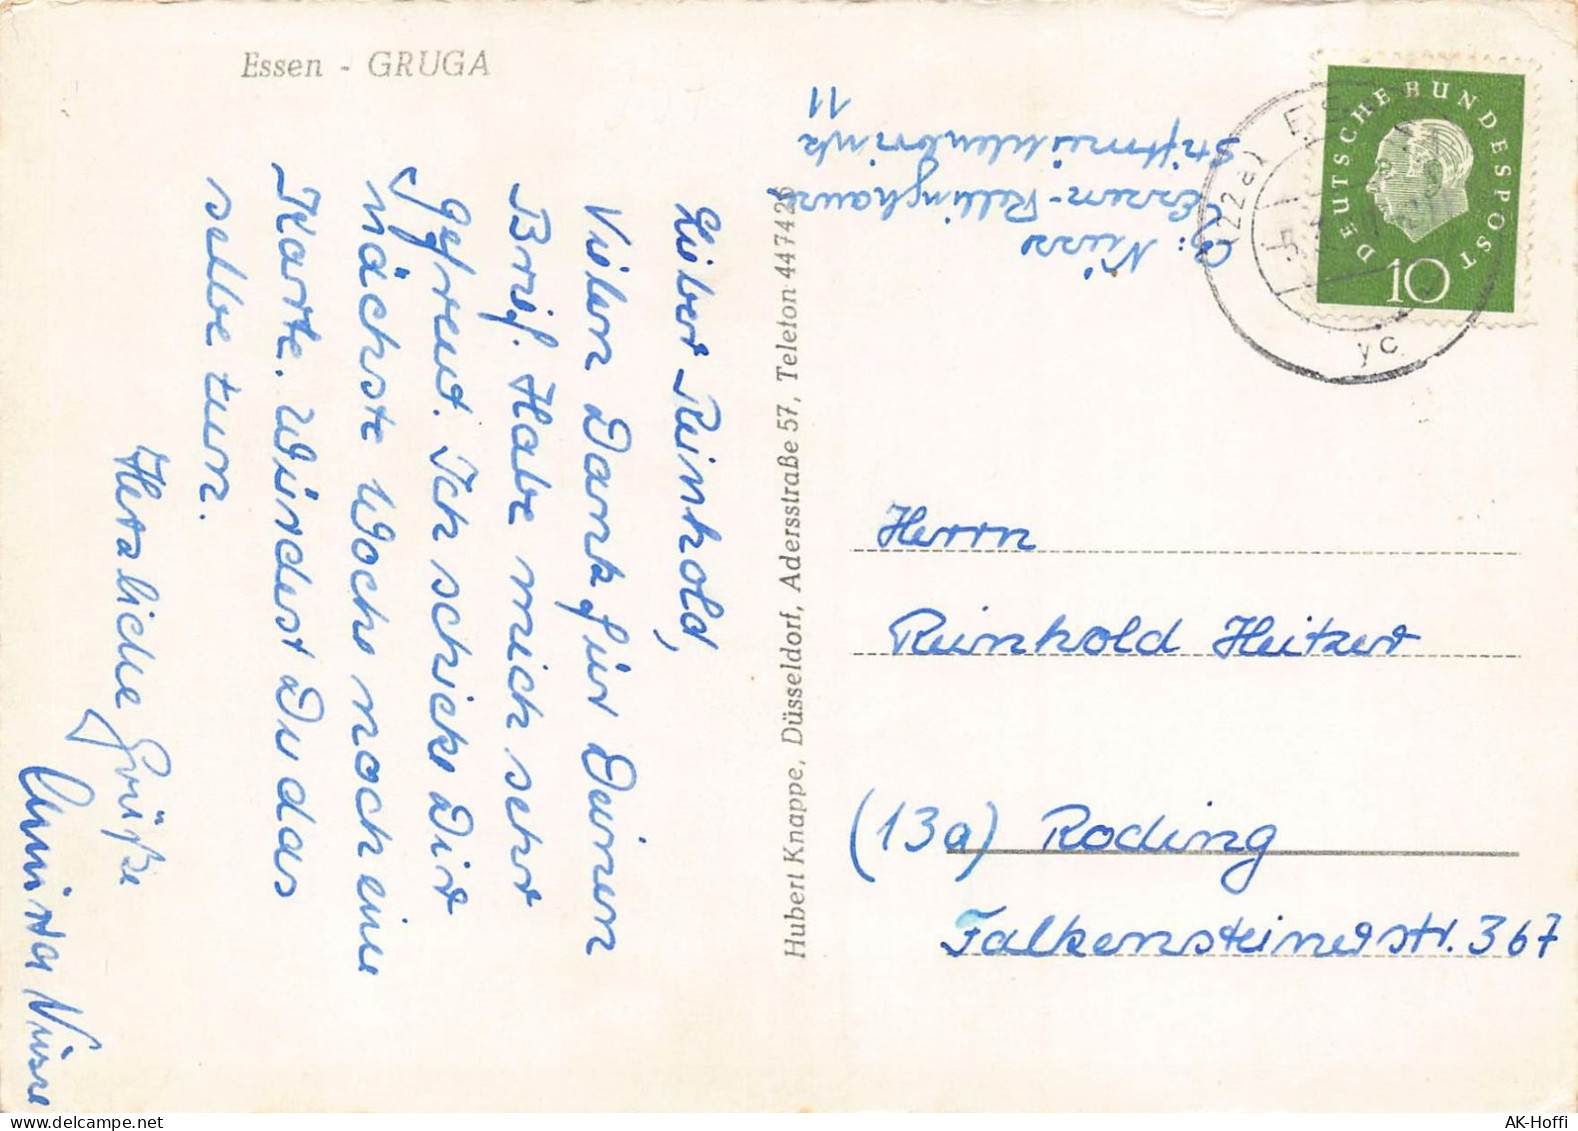 Essen - GRUGA
Lieber Reinhold,
Vielen Dank für Deinen
Brief. Habe mich sehr
gefreut. Ich schicke Dir
nächste Woche noch eine
Karte. Würdest Du das
selbe tun.
Herzliche Grüße
Nüsse
Hubert Knappe, Düsseldorf, Adersstraße 57, Telefon 447426
Nüsse
Essen-Rellinghausen
Stiftmühlenbrink
11
DEUTSCHE BUNDESPOST
10
(22a) ESSEN
yc
Herrn
Reinhold Heitzer
(13a) Roding
Falkensteinerstr. 367
AK-Hoffi